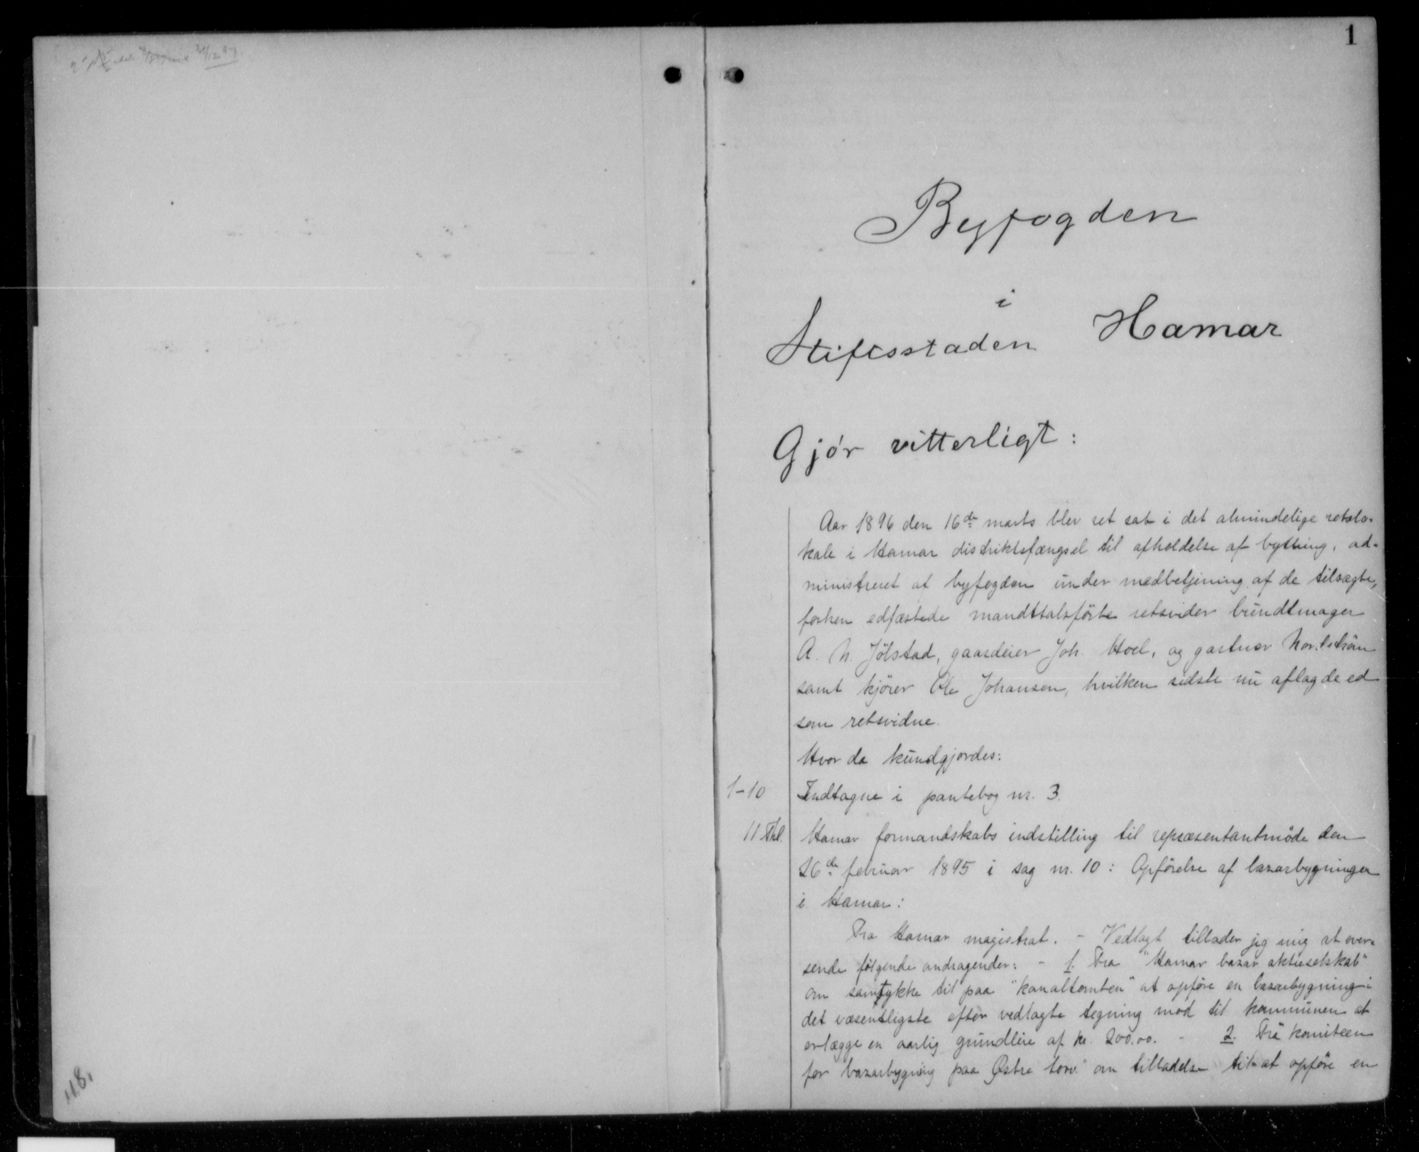 1
Byfogden
i
Stiftsstaden Hamar
Gjør vitterligt:
Aar 1896 den 16de marts blev ret sat i det almindelige retslo-
kale i Hamar distriktsfængsel til afholdelse af bything, ad-
ministreret af byfogden under medbetjening af de tilsagte,
forhen edfæstede mandttalsførte retsvidner bundtmager
A. N. Jølstad, gaardeier Joh. Hoel, og gartner
samt kjører Ole Johansen, hvilken sidste nu aflagde ed
som retsvidne.
Hvor da kundgjordes:
1-10 Indtagne i pantebog nr. 3.
11 Hamar formandskabs indstilling til repræsentantmøde den
26de februar 1895 i sag nr. 10: Opførelse af bazarbygninger
i Hamar:
Fra Hamar magistrat. - Vedlagt tillader jeg mig at over-
sende følgende andragender: - 1. Fra "Hamar bazar aktieselskab"
om samtykke til paa "kanaltomten" at opføre en bazarbygning i
det væsentligste efter vedlagte tegning mod til kommunen at
erlægge en aarlig grundleie af kr. 200.00. - 2. Fra komiteen
for bazarbygning paa Østre torv om tilladelse til at opføre en
118,